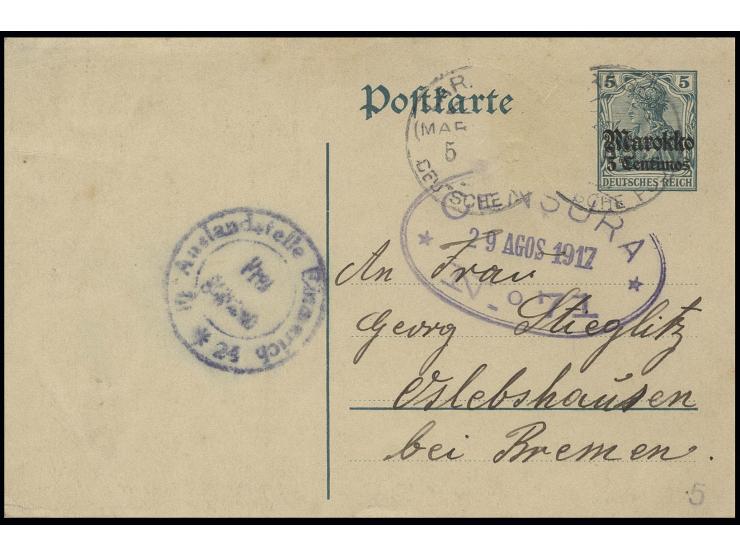 Postkarte
5 5
Marokko
5 Centimos
DEUTSCHES REICH
(MAR
5
DEUTSCHE
CENSURA
29 AGOS 1917
N.º 71
Auslandstelle Emmerich
Frei
* 24
An Frau
Georg Stieglitz
Oslebshausen
bei Bremen.
5